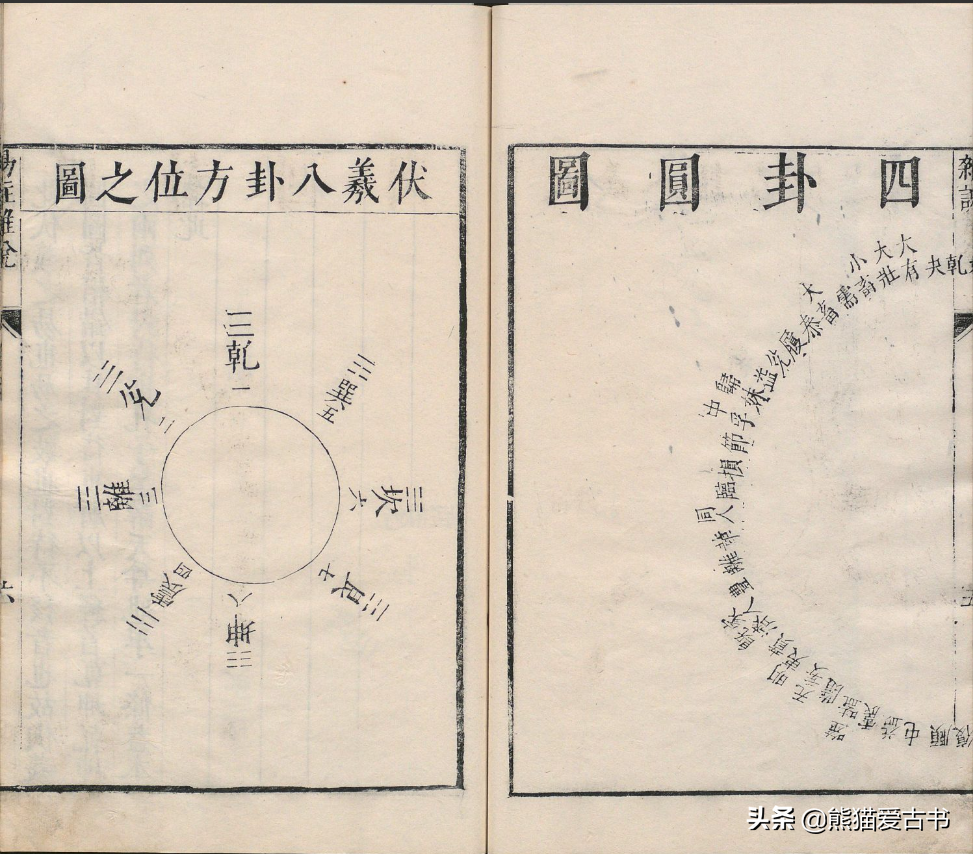 四卦圓圖
雜說
乾
夬
大有
大壯
小畜
需
大畜
泰
履
兌
歸妹
中孚
節
損
臨
同人
革
離
豐
家人
既濟
賁
明夷
无妄
隨
噬嗑
震
益
屯
頤
復
伏羲八卦方位之圖
乾一
兌二
離三
震四
巽五
坎六
艮七
坤八
雜說
六
头条 @熊猫爱古书